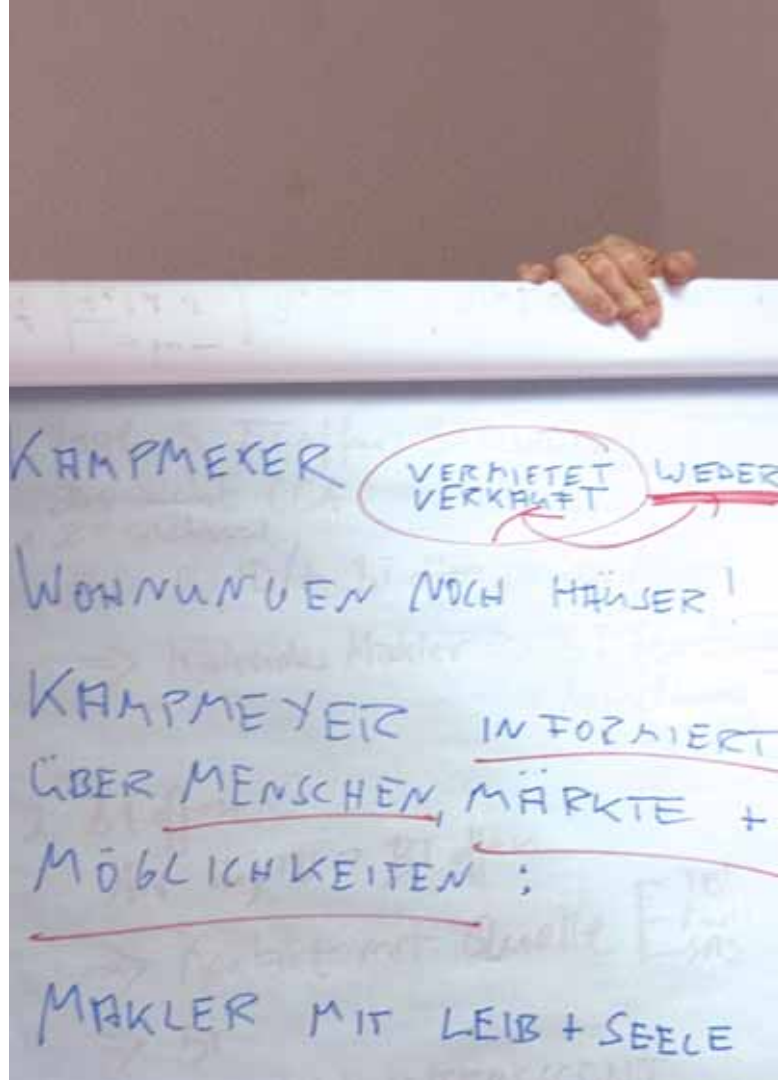 KAMPMEYER VERMIETET WEDER
VERKAUFT
WOHNUNGEN NOCH HÄUSER!
KAMPMEYER INFORMIERT
ÜBER MENSCHEN, MÄRKTE +
MÖGLICHKEITEN:
MAKLER MIT LEIB + SEELE